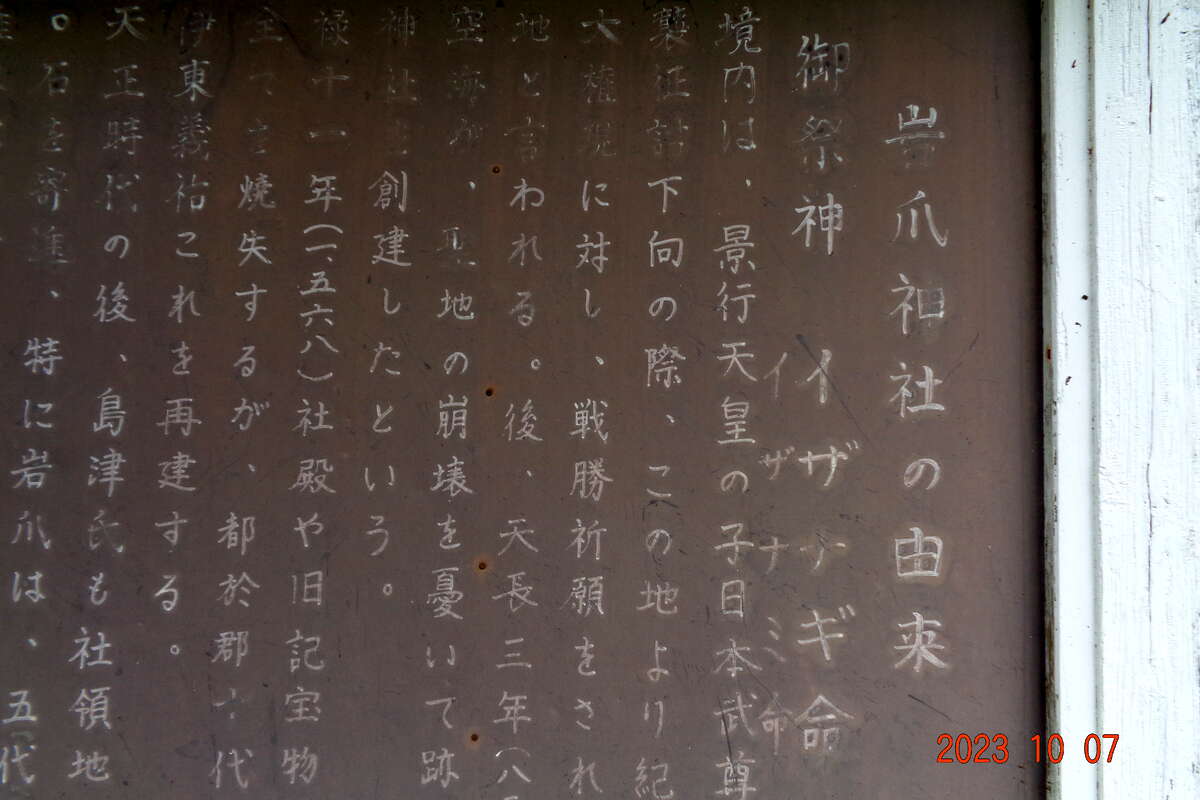 岩爪神社の由来
御祭神 イザナギ命
イザナミ命
境内は、景行天皇の子日本武尊
下向の際、この地より紀
大権現に対し、戦勝祈願をされ
地と言われる。後、天長三年(八
空海が、聖地の崩壊を憂いて跡
神社を創建したという。
禄十一年(一五六八)社殿や旧記宝物
全てを焼失するが、都於郡十代
伊東義祐これを再建する。
天正時代の後、島津氏も社領地
。石を寄進、特に岩爪は、五代
2023 10 07